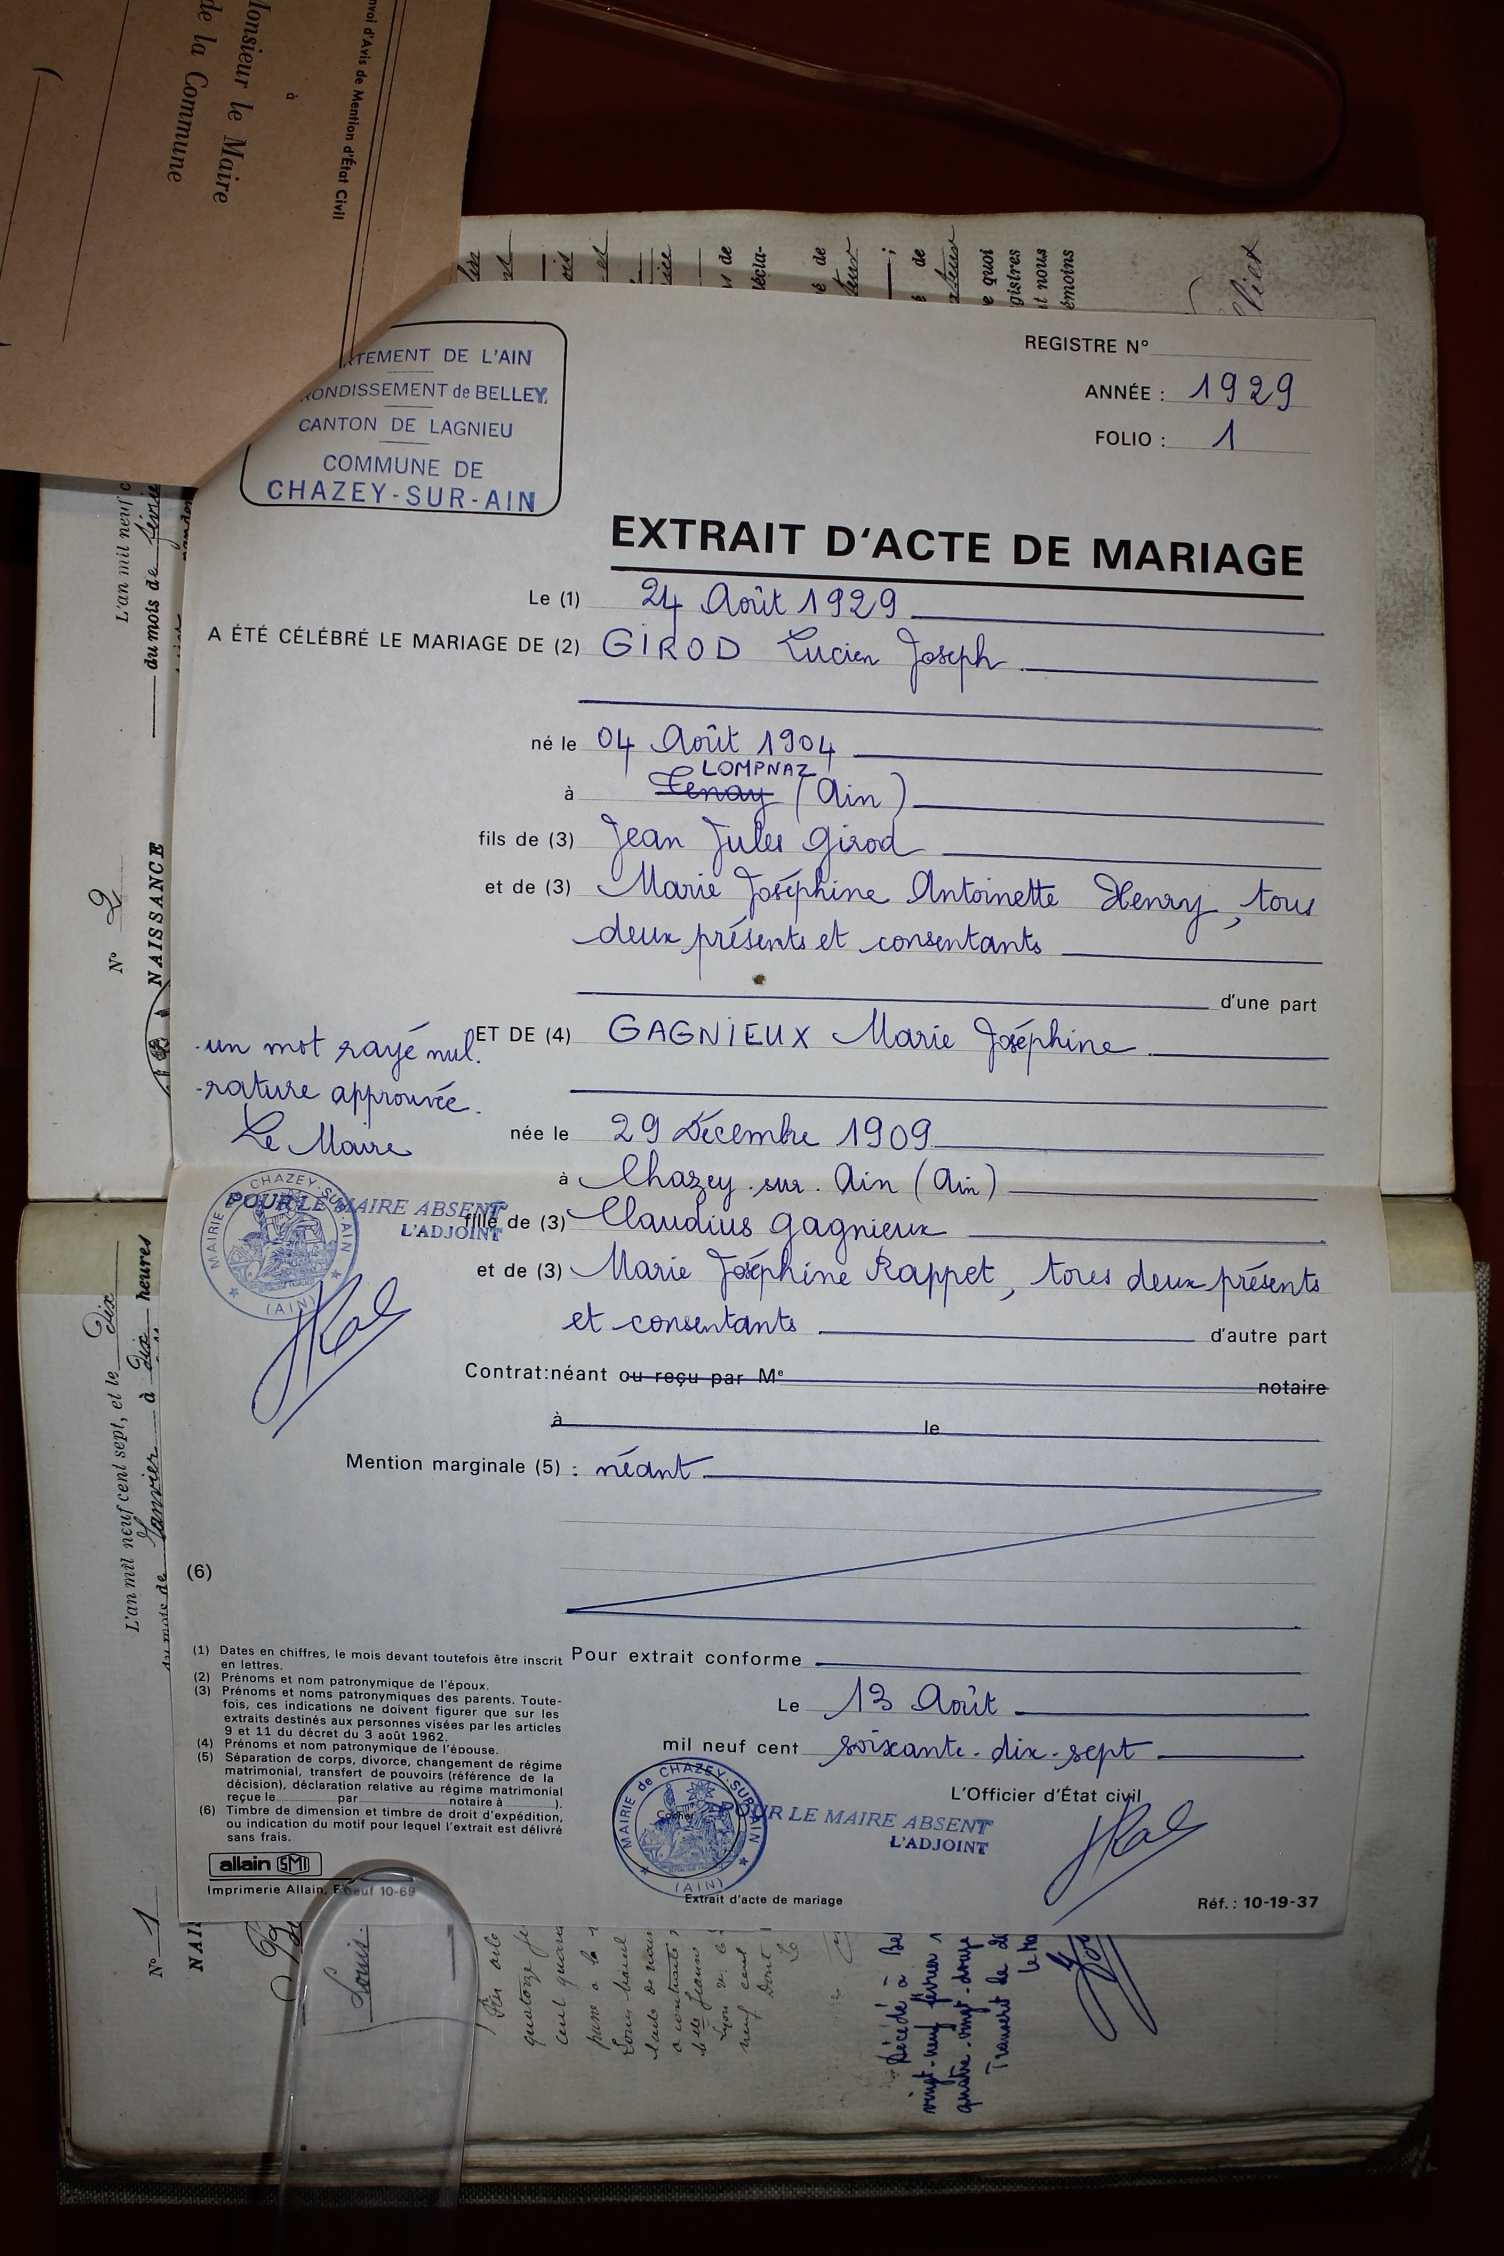 nvoi d'Avis de Mention d'État Civil
à
Monsieur le Maire
de la Commune
RTEMENT DE L'AIN
RONDISSEMENT de BELLEY
CANTON DE LAGNIEU
COMMUNE DE
CHAZEY-SUR-AIN
REGISTRE N°
ANNÉE : 1929
FOLIO : 1
EXTRAIT D'ACTE DE MARIAGE
Le (1) 24 Août 1929
A ÉTÉ CÉLÉBRÉ LE MARIAGE DE (2) GIROD Lucien Joseph
né le 04 Août 1904
LOMPNAZ
à Tenay (Ain)
fils de (3) Jean Jules Girod
et de (3) Marie Joséphine Antoinette Henry, tous
deux présents et consentants
d'une part
ET DE (4) GAGNIEUX Marie Joséphine
- un mot rayé nul.
- rature approuvée.
Le Maire
née le 29 Décembre 1909
à Chazey-sur-Ain (Ain)
MAIRIE de CHAZEY-SUR-AIN (AIN)
POUR LE MAIRE ABSENT
L'ADJOINT
fille de (3) Claudius Gagnieux
et de (3) Marie Joséphine Rappet, tous deux présents
et consentants d'autre part
Contrat: néant ou reçu par Me notaire
à le
Mention marginale (5) : néant
(6)
(1) Dates en chiffres, le mois devant toutefois être inscrit
en lettres.
(2) Prénoms et nom patronymique de l'époux.
(3) Prénoms et noms patronymiques des parents. Toute-
fois, ces indications ne doivent figurer que sur les
extraits destinés aux personnes visées par les articles
9 et 11 du décret du 3 août 1962.
(4) Prénoms et nom patronymique de l'épouse.
(5) Séparation de corps, divorce, changement de régime
matrimonial, transfert de pouvoirs (référence de la
décision), déclaration relative au régime matrimonial
reçue le par notaire à ).
(6) Timbre de dimension et timbre de droit d'expédition,
ou indication du motif pour lequel l'extrait est délivré
sans frais.
Pour extrait conforme
Le 13 Août
mil neuf cent soixante-dix-sept
L'Officier d'État civil
MAIRIE de CHAZEY-SUR-AIN (AIN)
POUR LE MAIRE ABSENT
L'ADJOINT
allain SMI
Imprimerie Allain, Elbeuf 10-69
Extrait d'acte de mariage
Réf. : 10-19-37
L'an mil neuf c
du mois de févrie
N° 2
NAISSANCE
L'an mil neuf cent sept, et le Dix
du mois de Janvier à dix heures
N° 1
NAI
Louis
de
décla-
é de
;
é de
e quoi
gistres
nt nous
émoins
Décédé à Be
vingt-neuf février
quatre-vingt-douze
Transcrit le